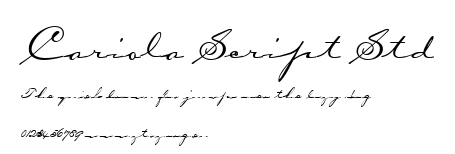 Cariola Script Std
The quick brown fox jumps over the lazy dog
0123456789